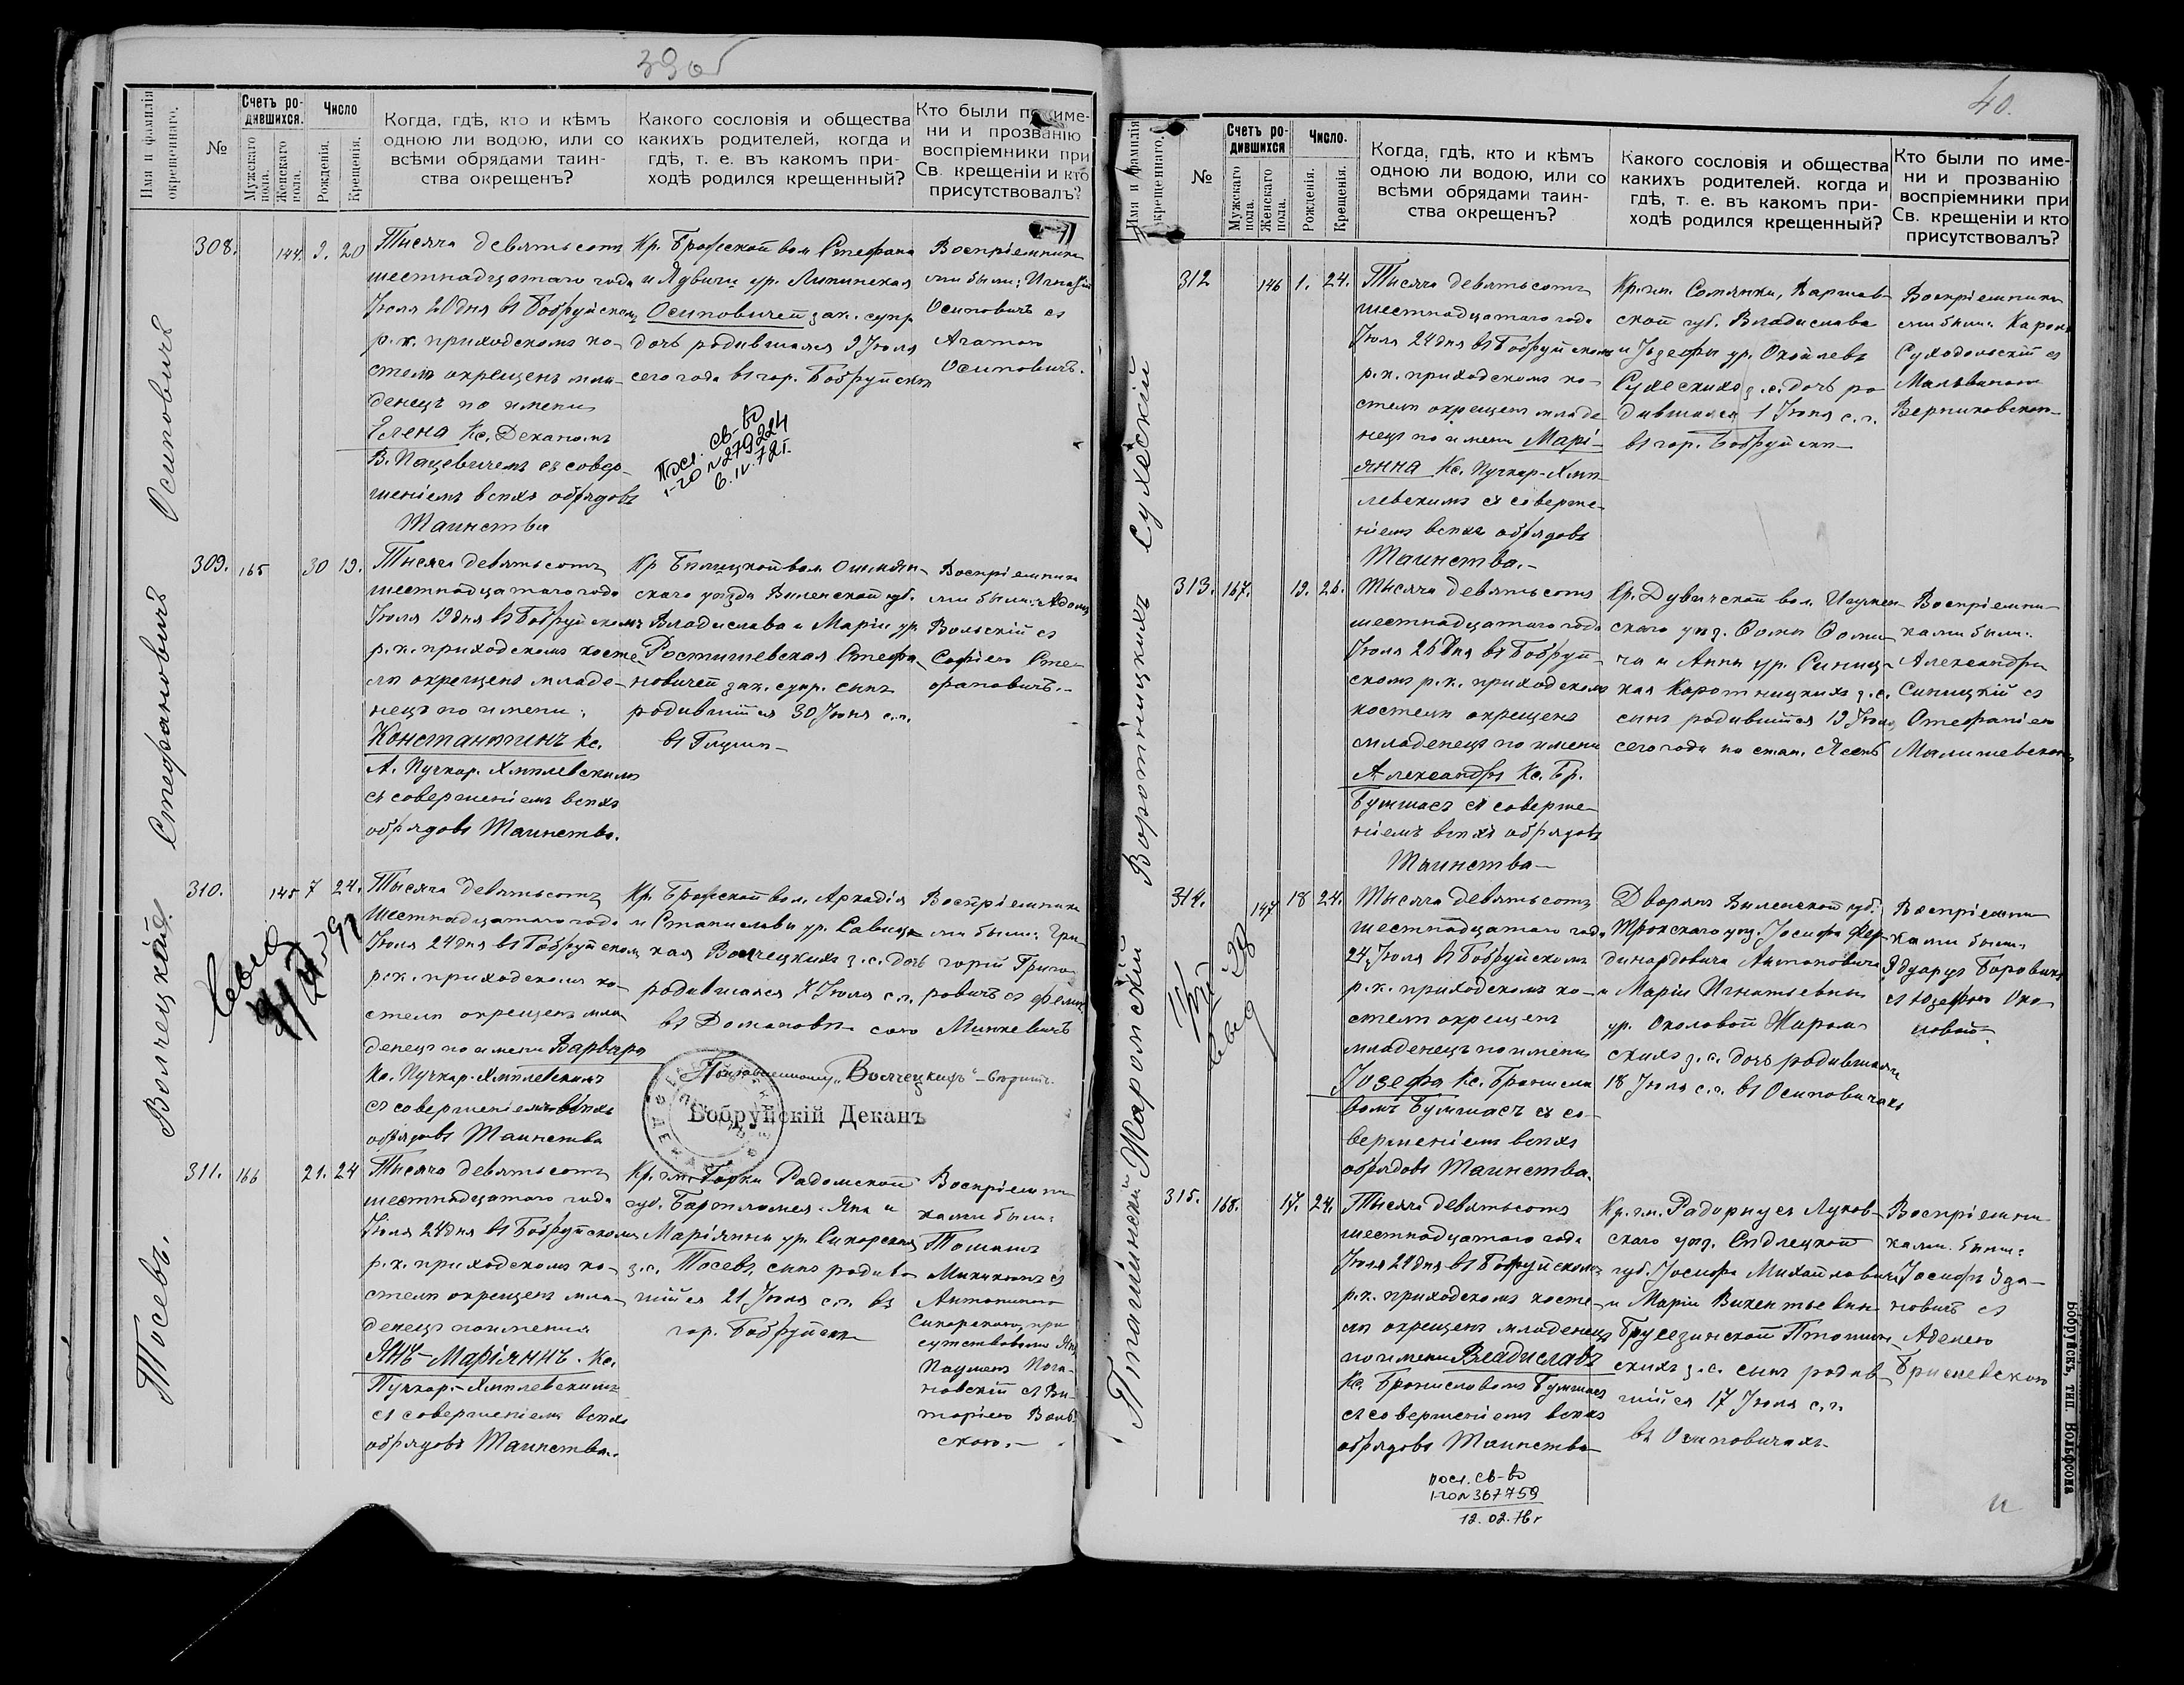 39об
Имя и фамилія окрещеннаго.
№
Счетъ родившихся.
Мужскаго пола.
Женскаго пола.
Число
Рожденія.
Крещенія.
Когда, гдѣ, кто и кѣмъ
одною ли водою, или со
всѣми обрядами таин-
ства окрещенъ?
Какого сословія и общества
какихъ родителей, когда и
гдѣ, т. е. въ какомъ при-
ходѣ родился крещенный?
Кто были по име-
ни и прозванію
воспріемники при
Св. крещеніи и кто
присутствовалъ?
Осиповичъ
308. 144. 9. 20
Тысяча девятьсотъ
шестнадцатаго года
Іюля 20 дня въ Бобруйскомъ
р.к. приходскомъ ко-
стелѣ окрещенъ мла-
денецъ по имени
Елена Кс. Деканомъ
В. Пацевичемъ съ совер-
шеніемъ всѣхъ обрядовъ
Таинства
Кр. Брожской вол. Стефана
и Ядвиги ур. Липинская
Осиповичей зак. супр.
дочь родившаяся 9 Іюля
сего года въ гор. Бобруйскѣ
Воспріемника-
ми были: Игнатій
Осиповичъ съ
Агатою
Осиповичъ.
Посл. св-во
1-го № 279224
6.IV.72г.
Стефановичъ
309. 165 30 19.
Тысяча девятьсотъ
шестнадцатаго года
Іюля 19 дня въ Бобруйскомъ
р.к. приходскомъ косте-
лѣ окрещенъ младе-
нецъ по имени:
Константинъ Кс.
А. Пучкар-Хмѣлевскимъ
съ совершеніемъ всѣхъ
обрядовъ Таинства.
Кр. Бѣлицкой вол. Ошмян-
скаго уѣзда Виленской губ.
Владислава и Маріи ур.
Ростишевская Стефа-
новичей зак. супр. сынъ
родившійся 30 Іюня с.г.
въ Глушѣ
Воспріемника-
ми были: Адамъ
Вольскій съ
Софіею Сте-
фановичъ.
Волчецкій
310. 145 7 24.
Тысяча девятьсотъ
шестнадцатаго года
Іюля 24 дня въ Бобруйскомъ
р.к. приходскомъ ко-
стелѣ окрещенъ мла-
денецъ по имени Варвара
Кс. Пучкар-Хмѣлевскимъ
съ совершеніемъ всѣхъ
обрядовъ Таинства
Кр. Брожской вол. Аркадія
и Станиславы ур. Савиц-
кая Волчецкихъ з.с. дочь
родившаяся 7 Іюля с.г.
въ Домановѣ
Воспріемника-
ми были: Гри-
горій Григо-
ровичъ съ
Минкевичъ
Поправленному „Волчецкихъ“ – вѣрить.
Бобруйскій Деканъ
Тосевъ.
311. 166 21. 24
Тысяча девятьсотъ
шестнадцатаго года
Іюля 24 дня въ Бобруйскомъ
р.к. приходскомъ ко-
стелѣ окрещенъ мла-
денецъ по имени
Янъ-Маріянъ. Кс.
Пучкар-Хмѣлевскимъ
съ совершеніемъ всѣхъ
обрядовъ Таинства.
Кр. гм. Горки Радомской
губ. Бартломея-Яна и
Маріянны ур. Сикорская
з.с. Тосевъ, сынъ родив-
шійся 21 Іюня с.г. въ
гор. Бобруйскѣ
Воспріемни-
ками были:
Томашъ
съ
Антониною
Сикорскою, при-
сутствовали Янъ
съ Ви-
кторіею Воль-
скою.
40.
Имя и фамилія окрещеннаго.
№
Счетъ родившихся
Мужскаго пола.
Женскаго пола.
Число.
Рожденія.
Крещенія.
Когда, гдѣ, кто и кѣмъ
одною ли водою, или со
всѣми обрядами таин-
ства окрещенъ?
Какого сословія и общества
какихъ родителей. когда и
гдѣ, т. е. въ какомъ при-
ходѣ родился крещенный?
Кто были по име-
ни и прозванію
воспріемники при
Св. крещеніи и кто
присутствовалъ?
Сухескій
312 146 1. 24.
Тысяча девятьсотъ
шестнадцатаго года
Іюля 24 дня въ Бобруйскомъ
р.к. приходскомъ ко-
стелѣ окрещенъ младе-
нецъ по имени Марі-
янна Кс. Пучкар-Хмѣ-
левскимъ съ соверше-
ніемъ всѣхъ обрядовъ
Таинства.
Кр. гм. Сомянки, Варшав-
ской губ. Владислава
и Іозефы ур.
Сухескихъ з.с. дочь ро-
дившаяся 1 Іюня с.г.
въ гор. Бобруйскѣ
Воспріемника-
ми были: Кароль
Суходольскій съ
Мальвиною
Верниковскою
Воротницкихъ
313. 167. 19. 26.
Тысяча девятьсотъ
шестнадцатаго года
Іюля 26 дня въ Бобруй-
скомъ р.к. приходскомъ
костелѣ окрещенъ
младенецъ по имени
Александръ Кс. Бр.
Бумшасъ съ соверше-
ніемъ всѣхъ обрядовъ
Таинства
Кр. вол. Игумен-
скаго уѣз. Ѳомы Ѳоми-
ча и Анны ур. Синиц-
кая з.с.
сынъ родившійся 19 Іюля
сего года на стан. Ясень
Воспріемни-
ками были:
Александръ
Синицкій съ
Стефаніею
Малишевскою
Жаромскій
314. 147 18 24.
Тысяча девятьсотъ
шестнадцатаго года
24 Іюля въ Бобруйскомъ
р.к. приходскомъ ко-
стелѣ окрещенъ
младенецъ по имени
Іозефа Кс. Брониела
вомъ Бумшасъ съ со-
вершеніемъ всѣхъ
обрядовъ Таинства.
Дворянъ Виленской губ.
Трокскаго уѣз. Іосифа Фер-
динардовича Антоновича
и Маріи Игнатьевны
ур. Околовой Жаром-
скихъ з.с. дочь родившаяся
18 Іюля с.г. въ Осиповичахъ
Воспріемни-
ками были:
Эдуардъ Боровикъ
съ Юзефою Око-
ловой
Пташинскій
315. 168. 17. 24.
Тысяча девятьсотъ
шестнадцатаго года
Іюля 24 дня въ Бобруйскомъ
р.к. приходскомъ косте-
лѣ окрещенъ младенецъ
по имени Владиславъ
Кс. Брониславомъ Бумшасъ
съ совершеніемъ всѣхъ
обрядовъ Таинства
Кр. гм. Луков-
скаго уѣз. Сѣдлецкой
губ. Іосифа Михайловича
и Маріи Викентьевны
Пташин-
скихъ з.с. сынъ родив-
шійся 17 Іюня с.г.
въ Осиповичахъ
Воспріемни-
ками были:
Іосифъ Зда-
новичъ съ
Аделею
посл. св-во
1-го № 367759
12.02.76г
Бобруйскъ, тип. Вольфсона